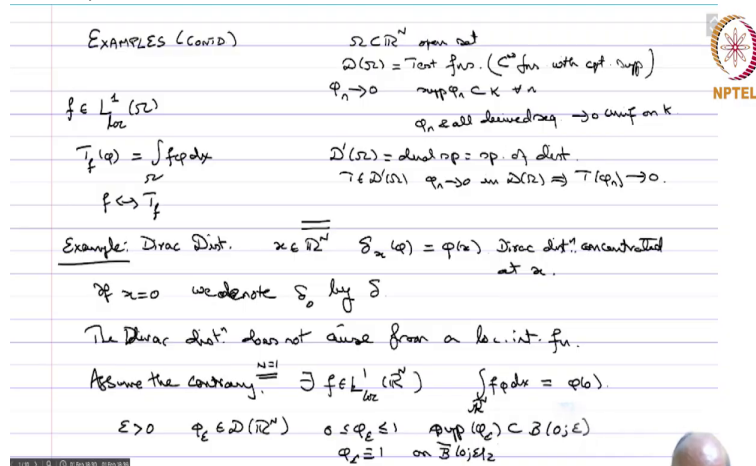 EXAMPLES (CONTD)
Ω⊂ℝᴺ open set
𝒟(Ω) = Test fns. (C^∞ fns with cpt. supp)
φₙ→0 supp φₙ ⊂ K ∀ n
φₙ & all derived seq. →0 unif on K.
f ∈ L¹_loc (Ω)
T_f(φ) = ∫_Ω fφdx
𝒟'(Ω) = dual sp = sp. of dist.
T∈𝒟'(Ω) φₙ→0 in 𝒟(Ω) ⇒ T(φₙ)→0.
f ↔ T_f
Example: Dirac Dist. x∈ℝᴺ δₓ(φ) = φ(x) Dirac distⁿ. concentrated
at x.
If x=0 we denote δ₀ by δ
The Dirac distⁿ. does not arise from a loc. int. fn.
Assume the contrary. N=1 ∃ f∈L¹_loc(ℝᴺ) ∫_ℝᴺ fφdx = φ(0).
ε>0 φ_ε∈𝒟(ℝᴺ) 0≤φ_ε≤1 supp(φ_ε) ⊂ B(0;ε)
φ_ε≡1 on B̄(0;ε/2
NPTEL